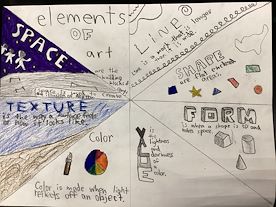 elements
OF
art
are the
building
blocks of
SPACE
Line
is a mark that is longer
SHAPE
are flat enclosed
areas.
TEXTURE
is the way a surface feels
or how it looks like.
Color
Color is made when light
reflects off an object.
VALUE
is the
lightness
and
darkness
of
color.
FORM
is when a shape is 3D and
takes space.